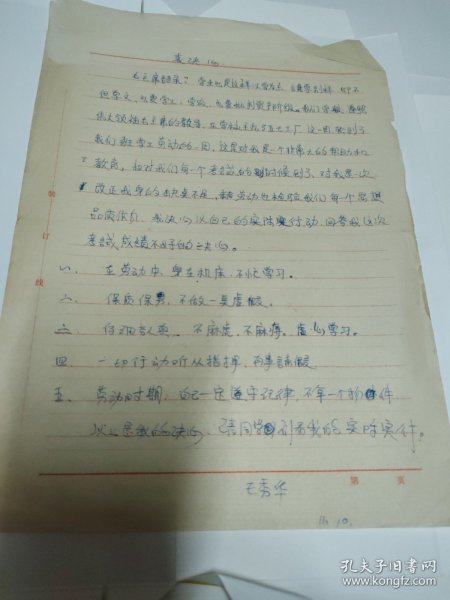 表决心
毛主席教导："学生也是这样，以学为主，兼学别样，即不
但学文，也要学工、学农，也要批判资产阶级。"我们学校遵照
伟大领袖毛主席的教导，在学校 工厂这一周轮到了
我们班学工劳动的一周，这是对我是一个非常大的帮助和
教育，相对我们每一个考验的时候到了，对我是一次
改正我身的缺点不足，劳动也检验我们每个思想
品质 ，我决心以自己的实际行动，回答我这次
考验成绩不好的决心。
一、在劳动中，身在机床，不忘学习。
二、保质保量，不做一具虚假。
三、仔细认真，不麻痹，虚心学习。
四、一切行动听从指挥，
五、劳动时期，自己一定遵守纪律，不拿一个物件
以上是我的决心，请同学们看我的实际实件。
王秀华
11.10.
第 页
装
订
线
孔夫子旧书网
www.kongfz.com